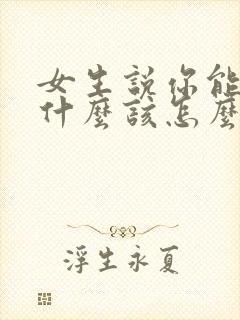 女生說你能
什麼該怎麼
浮生永夏